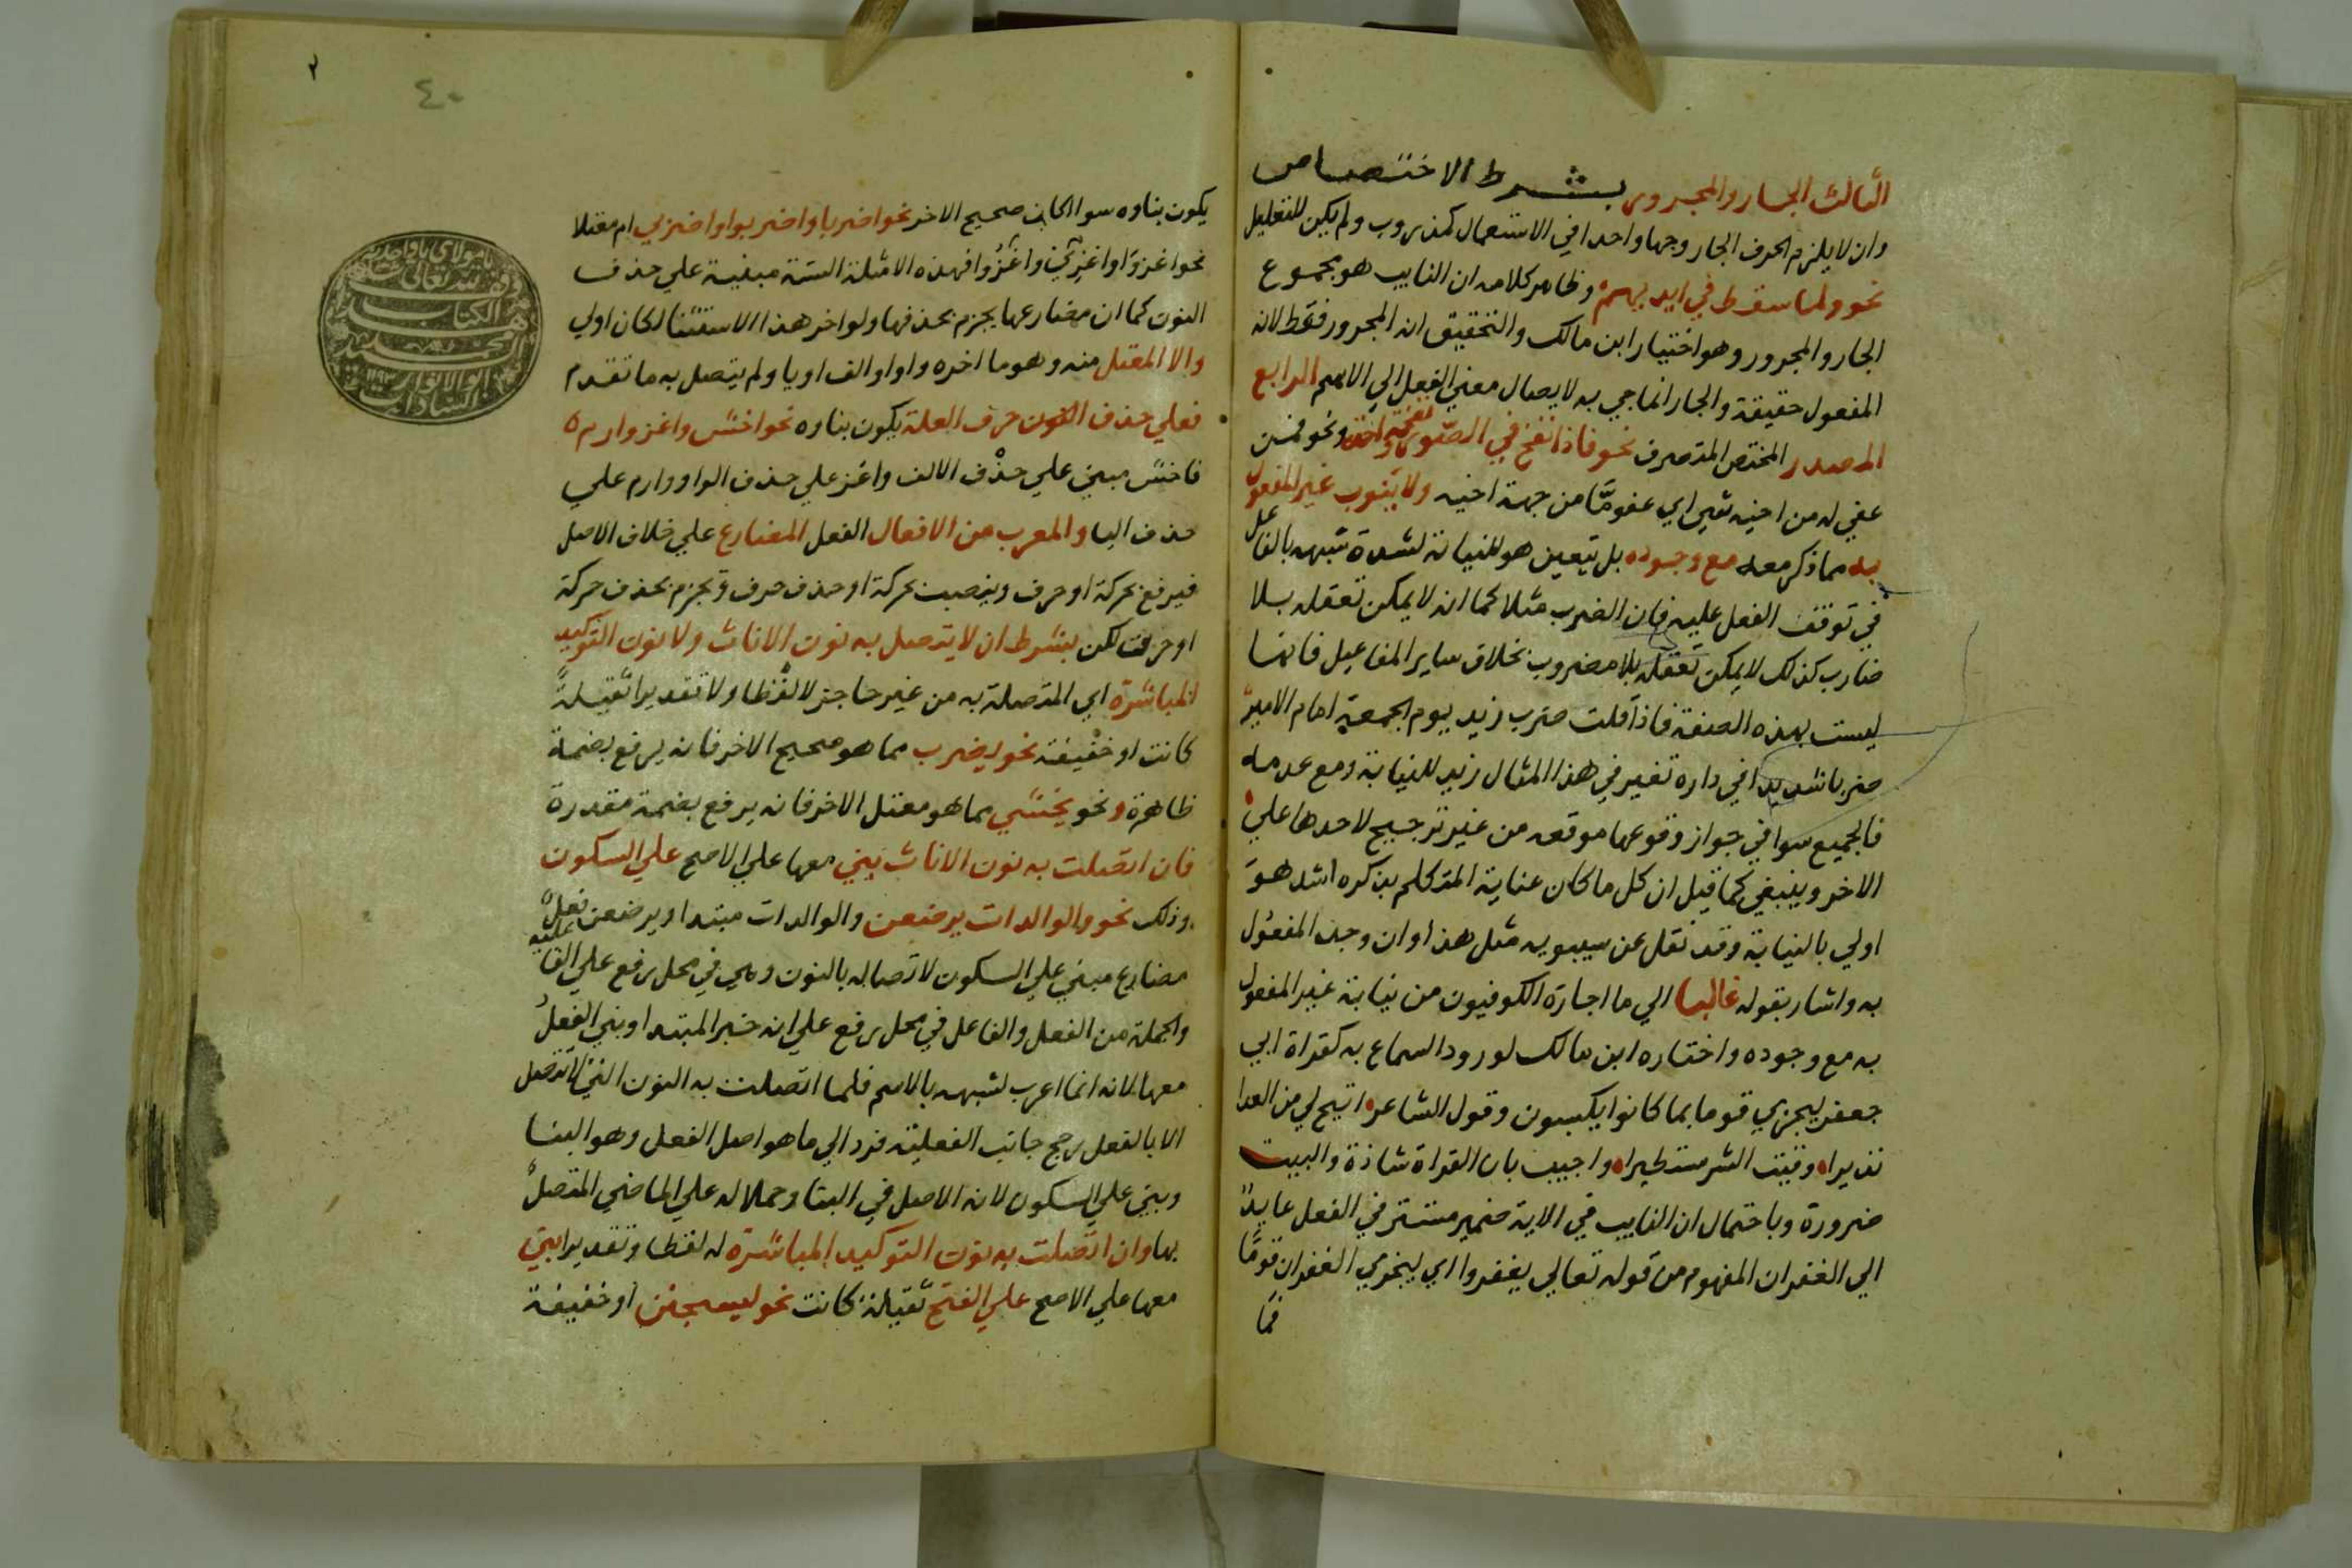 الثالث الجار والمجرور بشرط الاختصاص
وان لا يلزم الحرف الجار وجها واحدا في الاستعمال كمذ ورب ولم يكن للتعليل
نحو ولما سقط في ايديهم وظاهر كلامه ان النايب هو مجموع
الجار والمجرور وهو اختيار ابن مالك والتحقيق انه المجرور فقط لانه
المفعول حقيقة والجار انما جي به لايصال معني الفعل الي الاسم الرابع
المصدر المختص المتصرف نحو فاذا نفخ في الصور نفخة واحدة ونحو فمن
عفي له من اخيه شي اي عفو ما من جهة اخيه ولا ينوب غير المفعول
به مما ذكر معه مع وجوده بل يتعين هو للنيابة لشدة شبهه بالفاعل
في توقف الفعل عليه فان الضرب مثلا كما انه لا يمكن تعقله بلا
ضارب كذلك لا يمكن تعقله بلا مضروب بخلاف ساير المفاعيل فانها
ليست بهذه الصفة فاذا قلت ضرب زيد يوم الجمعة امام الامير
ضربا شديدا في داره تعين في هذا المثال زيد للنيابة ومع عدمه
فالجميع سوا في جواز وقوعها موقعه من غير ترجيح لاحدها علي
الاخر وينبغي كما قيل ان كل ما كان عناية المتكلم بذكره اشد هو
اولي بالنيابة وقد نقل عن سيبويه مثل هذا وان وجد المفعول
به واشار بقوله غالبا الي ما اجازه الكوفيون من نيابة غير المفعول
به مع وجوده واختاره ابن مالك لورود السماع به كقراة ابي
جعفر ليجزي قوما بما كانوا يكسبون وقول الشاعر اتيح لي من العدا
نذيرا وقيت الشر مستطيرا واجيب بان القراة شاذة والبيت
ضرورة وباحتمال ان النايب في الاية ضمير مستتر في الفعل عايد
الي الغفران المفهوم من قوله تعالي يغفروا اي ليجزي الغفران قوما
يكون بناوه سوا اكان صحيح الاخر نحو اضربا واضربوا واضربي ام معتلا
نحو اغزوا واغزي واغزوا فهذه الامثلة الستة مبنية علي حذف
النون كما ان مضارعها يجزم بحذفها ولو اخر هذا الاستثنا لكان اولي
والا المعتل منه وهو ما اخره واو او الف او يا ولم يتصل به ما تقدم
فعلي حذف النون حرف العلة يكون بناوه نحو اخش واغز وارم
فاخش مبني علي حذف الالف واغز علي حذف الواو وارم علي
حذف اليا والمعرب من الافعال الفعل المضارع علي خلاف الاصل
فيرفع بحركة او حرف وينصب بحركة او حذف حرف ويجزم بحذف حركة
او حرف لكن بشرط ان لا يتصل به نون الاناث ولا نون التوكيد
المباشرة اي المتصلة به من غير حاجز لا لفظا ولا تقديرا ثقيلة
كانت او خفيفة نحو يضرب مما هو صحيح الاخر فانه يرفع بضمة
ظاهرة ونحو يخشي مما هو معتل الاخر فانه يرفع بضمة مقدرة
فان اتصلت به نون الاناث بني معها علي الاصح علي السكون
وذلك نحو والوالدات يرضعن والوالدات مبتدا ويرضعن فعل
مضارع مبني علي السكون لاتصاله بالنون وهي في محل رفع علي الفاعلية
والجملة من الفعل والفاعل في محل رفع علي انه خبر المبتدا وبني الفعل
معها لانه انما اعرب لشبهه بالاسم فلما اتصلت به النون التي لا تتصل
الا بالفعل رجح جانب الفعلية فرد الي ما هو اصل الفعل وهو البنا
وبني علي السكون لانه الاصل في البنا وحملا له علي الماضي المتصل
بها وان اتصلت به نون التوكيد المباشرة له لفظا وتقديرا بني
معها علي الاصح علي الفتح ثقيلة كانت نحو ليسجنن او خفيفة